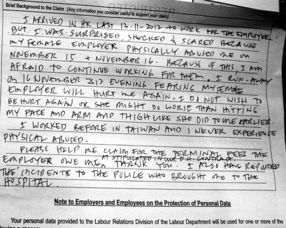 Brief Background to the Claim (Any information you consider useful to support your claim)
I ARRIVED IN HK LAST 13-11-2012 TO WORK FOR THE EMPLOYER.
BUT I WAS SURPRISED SHOCKED & SCARED BECAUSE
MY FEMALE EMPLOYER PHYSICALLY ABUSED ME ON
NOVEMBER 15 & NOVEMBER 16. BECAUSE OF THIS I AM
AFRAID TO CONTINUE WORKING FOR THEM. I RUN-AWAY
ON 16 NOVEMBER 2012 EVENING FEARING MY FEMALE
EMPLOYER WILL HURT ME AGAIN. I DO NOT WISH TO
BE HURT AGAIN OR SHE MIGHT DO WORSE THAN HITTING
MY FACE AND ARM AND THIGH LIKE SHE DID TO ME EARLIER.
I WORKED BEFORE IN TAIWAN AND I NEVER EXPERIENCE
PHYSICAL ABUSED.
PLEASE HELP ME CLAIM FOR THE TERMINAL FEES THE
EMPLOYER OWE ME AS STIPULATED IN OUR D.H. CONTRACT.
THANK YOU. I ALSO HAVE REPORTED
THE INCIDENTS TO THE POLICE WHO BROUGHT ME TO THE
HOSPITAL
Note to Employers and Employees on the Protection of Personal Data
Your personal data provided to the Labour Relations Division of the Labour Department will be used for one or more of the